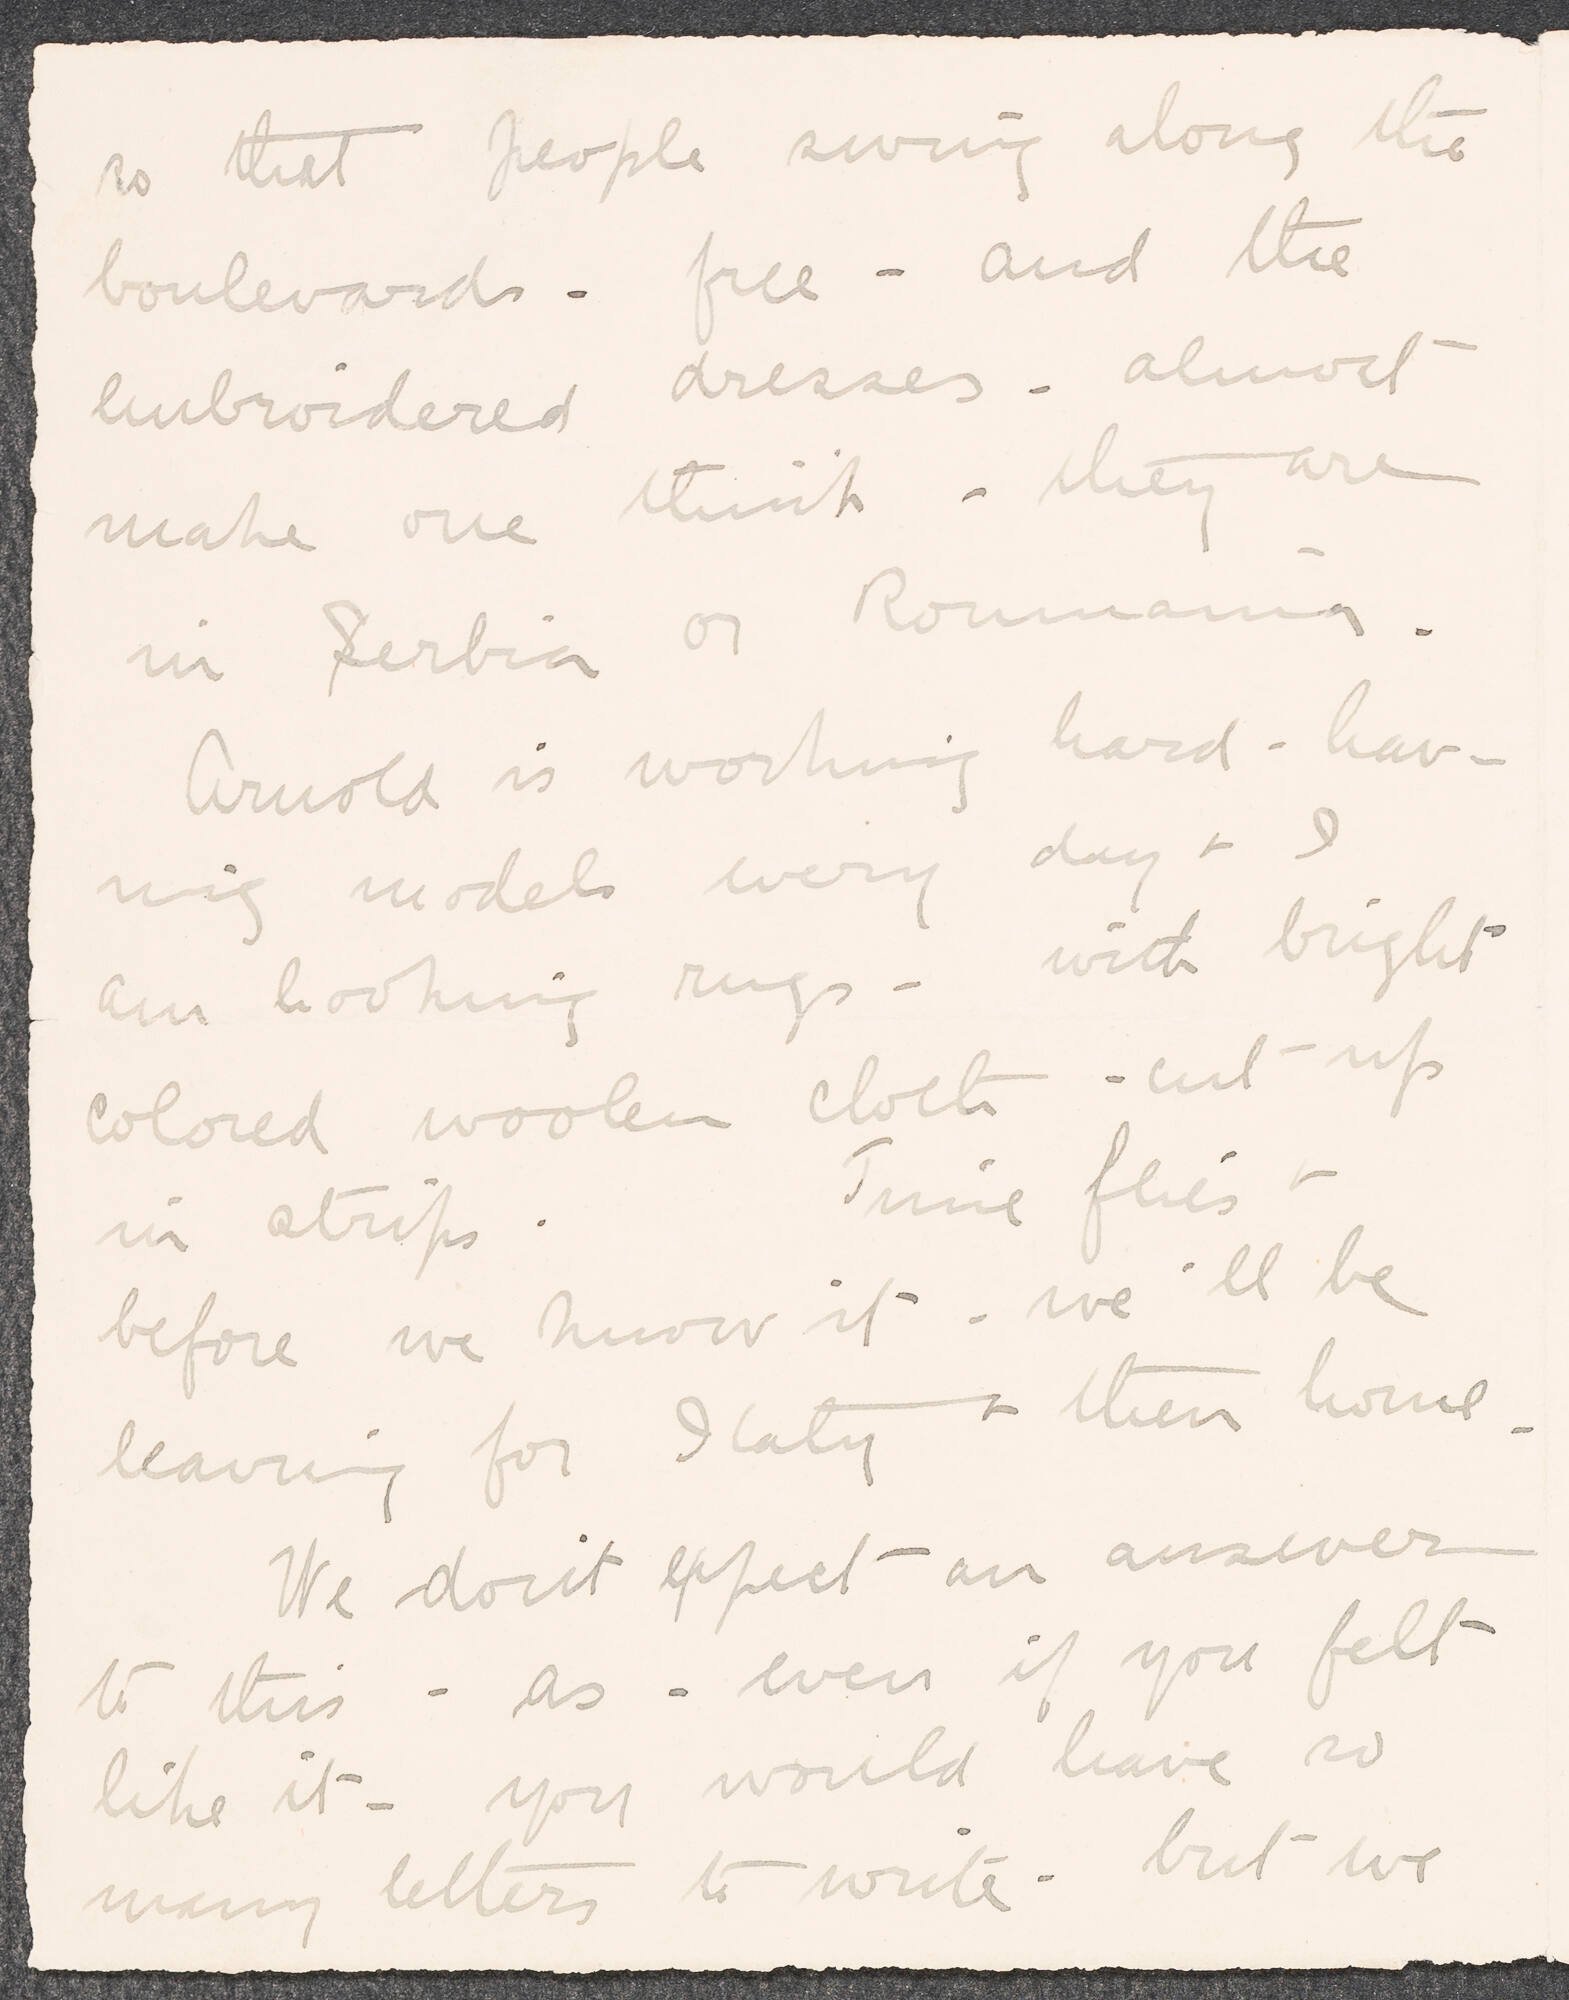 so that people swing along the
boulevards - free - and the
embroidered dresses - almost
make one think - they are
in Serbia or Roumania.
Arnold is working hard - hav-
ing models every day + I
am hooking rugs - with bright
colored woolen cloth - cut up
in strips. Time flies +
before we know it - we'll be
leaving for Italy + then home -
We don't expect an answer
to this - as - even if you felt
like it - you would have so
many letters to write - but we